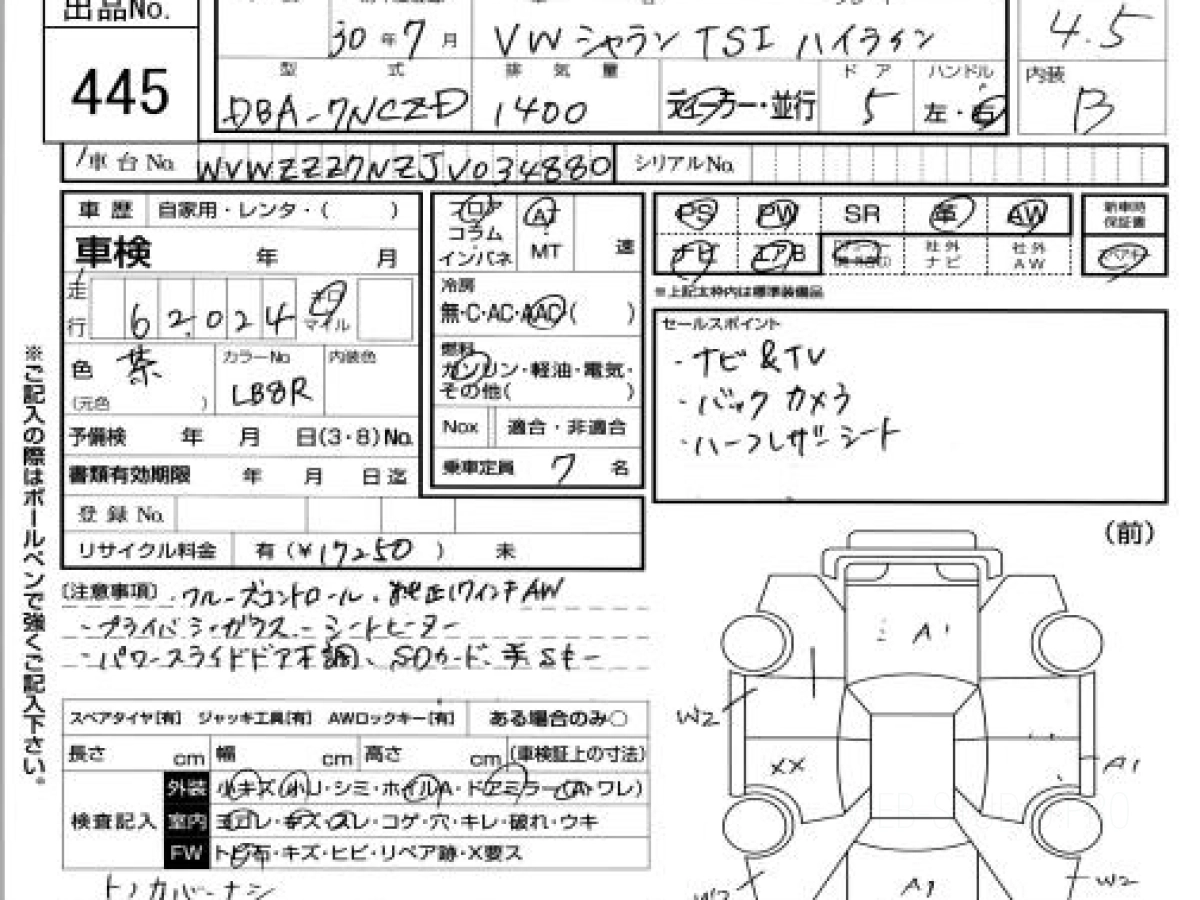 出品No.
445
30年7月 VW シャラン TSI ハイライン 4.5
型式 排気量 ドア ハンドル 内装
DBA-7NCZD 1400 ディーラー・並行 5 左・右 B
車台No. WVWZZZ7NZJV034880 シリアルNo.
車歴 自家用・レンタ・( )
フロア AT
コラム
インパネ MT 速
PS PW SR 革 AW 新車時保証書
ナビ エアB 社外ナビ 社外AW
※上記太枠内は標準装備品
車検 年 月
走行 62,024 キロ マイル
冷房
無・C・AC・AAC( )
色 茶 カラーNo 内装色
(元色 ) LB8R
燃料
ガソリン・軽油・電気・
その他( )
セールスポイント
・ナビ&TV
・バックカメラ
・ハーフレザーシート
予備検 年 月 日(3・8)No.
Nox 適合・非適合
書類有効期限 年 月 日迄
乗車定員 7 名
登録No.
リサイクル料金 有(¥17250 ) 未
(前)
[注意事項]・クルーズコントロール、純正17インチAW
・プライバシーガラス・シートヒーター
・パワースライドドア不調、SDカード、手Sキー
※ご記入の際はボールペンで強くご記入下さい。
スペアタイヤ[有] ジャッキ工具[有] AWロックキー[有] ある場合のみ○
長さ cm 幅 cm 高さ cm (車検証上の寸法)
検査記入
外装 小キズ(小)U・シミ・ホイルA・ドアミラー(A・ワレ)
室内 ヨゴレ・キズ・スレ・コゲ・穴・キレ・破れ・ウキ
FW トビ石・キズ・ヒビ・リペア跡・X要ス
トノカバーナシ
A1
W2
XX
A1
W2
A1
W2